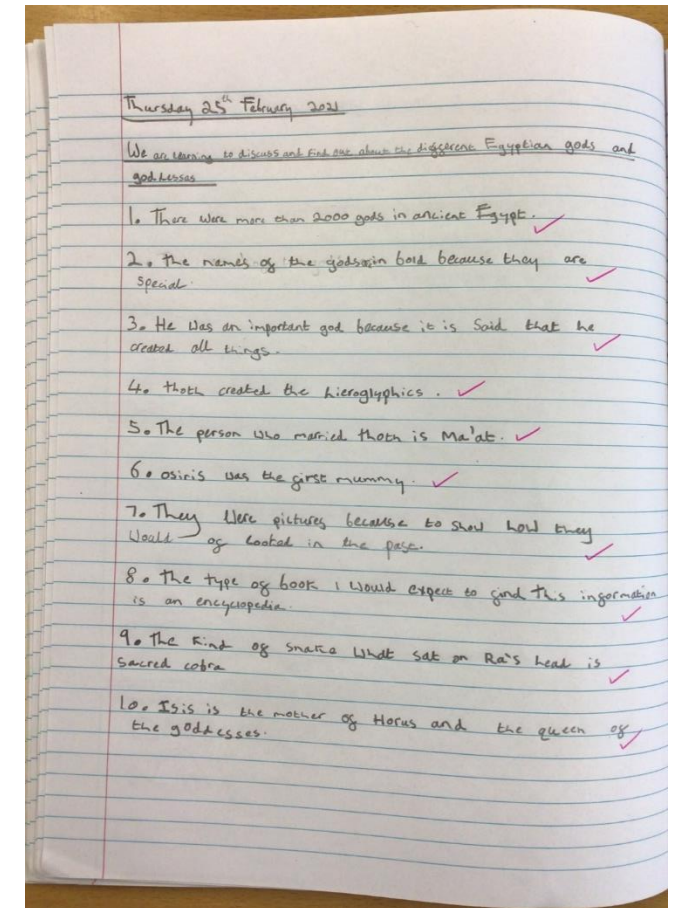 Thursday 25th February 2021
We are learning to discuss and find out about the different Egyptian gods and
goddesses
1. There were more than 2000 gods in ancient Egypt.
2. the names of the gods in bold because they are
special.
3. He was an important god because it is said that he
created all things.
4. thoth created the hieroglyphics.
5. The person who married thoth is Ma'at.
6. osiris was the first mummy.
7. They were pictures because to show how they
would of looked in the past.
8. the type of book I would expect to find this information
is an encyclopedia.
9. the kind of snake what sat on Ra's head is
sacred cobra
10. Isis is the mother of Horus and the queen of
the goddesses.